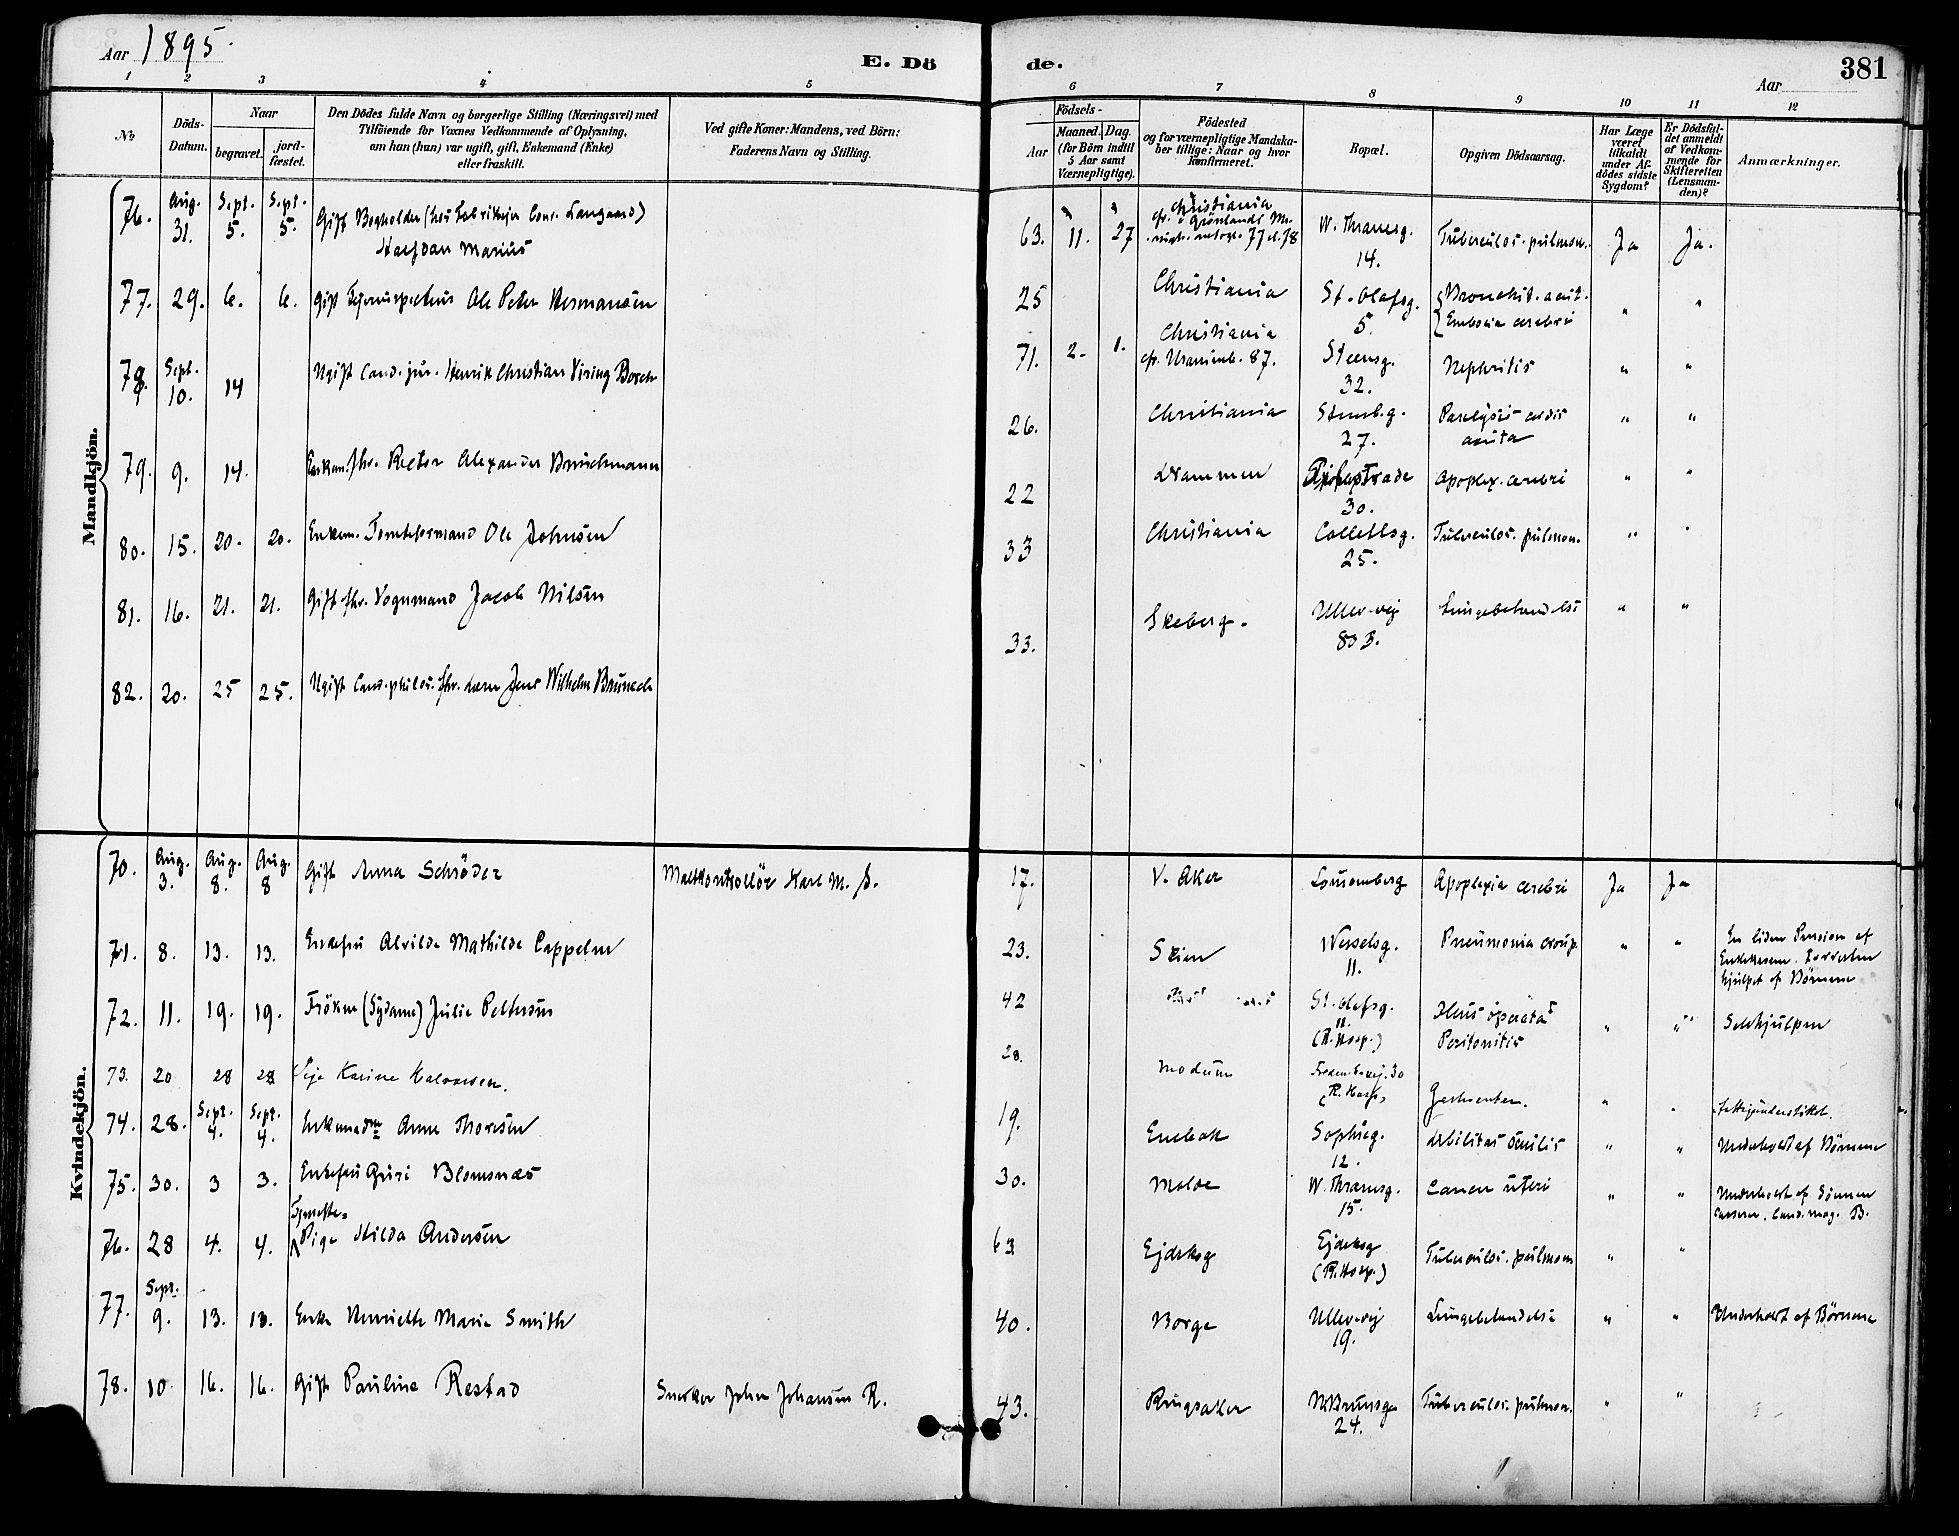 Aar 1895.
E. Dö
de.
Aar
381
1 2 3 4 5
6 7 8 9 10 11 12
No
Döds-
Datum.
Naar
begravet.
jord-
fæstet.
Den Dödes fulde Navn og borgerlige Stilling (Næringsvei) med
Tilföiende for Voxnes Vedkommende af Oplysning,
om han (hun) var ugift, gift, Enkemand (Enke)
eller fraskilt.
Ved gifte Koner: Mandens, ved Börn:
Faderens Navn og Stilling.
Födsels-
Aar
Maaned.
Dag.
(for Börn indtil
5 Aar samt
Værnepligtige).
Födested
og for værnepligtige Mandska-
ber tillige: Naar og hvor
konfirmeret.
Bopæl.
Opgiven Dödsaarsag.
Har Læge
været
tilkaldt
under Af-
dödes sidste
Sygdom?
Er Dödsfal-
det anmeldt
af Vedkom-
mende for
Skifteretten
(Lensman-
den)?
Anmærkninger.
Mandkjön.
76. Aug. 31. Sept. 5. Sept. 5. Gift Bogholder (hos Fabrikejer Cons. Langaard)
Halfdan Marius
63. 11. 27 Christiania
W. Thranesg. 14. Tuberculos. pulmon. Ja Ja.
77. 29. 6. 6. Gift Ole Peter Hermansen
25 Christiania St. Olafsg. 5. Bronchit. acut.
Embolia cerebri " "
78. Sept. 10. 14 Ugift Cand. jur. Henrik Christian Borch
71. 2. 1. Christiania
cf. Uranienb. 87. Steensg. 32. Nephritis " "
79. 9. 14. Enkem. fhv. Rector Alexander Bruchmann
26. Christiania 27. Paralysis cordis
acuta " "
80. 15. 20. 20. Enkem. Tomteformand Ole Johnsen
22 Drammen 30. Apoplex. cerebri " "
81. 16. 21. 21. Gift fhv. Vognmand Jacob Nilsen
33 Christiania Collettsg. 25. Tuberculos. pulmon. " "
82. 20. 25 25. Ugift Cand. philos. fhv. Jens Wilhelm
33. Skeberg. Ullev.vej 80 B. Lungebetændelse " "
Kvindekjön.
70. Aug. 3. Aug. 8. Aug. 8 Gift Anna Schröder Maltkontrollör Karl M. S.
17. V. Aker Louisenberg Apoplexia cerebri Ja Ja
71. 8. 13. 13. Enkefru Alvilde Mathilde Cappelen
23. Skien Wesselsg. 11. Pneumonia croup. " " En liden Pension af
Enkekassen. Forresten
hjulpet af Börnene
72. 11. 19. 19. Fröken (Sydame) Julie Pettersen
42 St. Olafsg. 11. (R. Hosp.) Ileus operatus
Peritonitis " " Selvhjulpen
73. 20 28 28 Pige Karine Halvorsen.
28. Modum 30 (R. Hosp.) " "
74. 28. Sept. 4. Sept. 4. Enkemadm Anne Thoresen
19. Enebak Sophieg. 12. Debilitas senilis " " Underholdt af Börnene
75. 30. 3 3. Enkefru Guri Blomsnæs
30. Molde W. Thranesg. 15. Cancer uteri " " Underholdt af Sönnen
Cand. mag. B.
76. 28 4. 4. Tjeneste-
Pige Hilda Andersen
63 Ejdskog Ejdskog (R. Hosp.) Tuberculos. pulmon " "
77. Sept. 9. 13. 13. Enke Henriette Marie Smith
40. Borge Ullev.vej 19. Lungebetændelse " " Underholdt af Börnene
78. 10. 16. 16. Gift Pauline Restad Snekker John Johansen R.
43. Ringsaker 24. Tuberculos. pulmon. " "